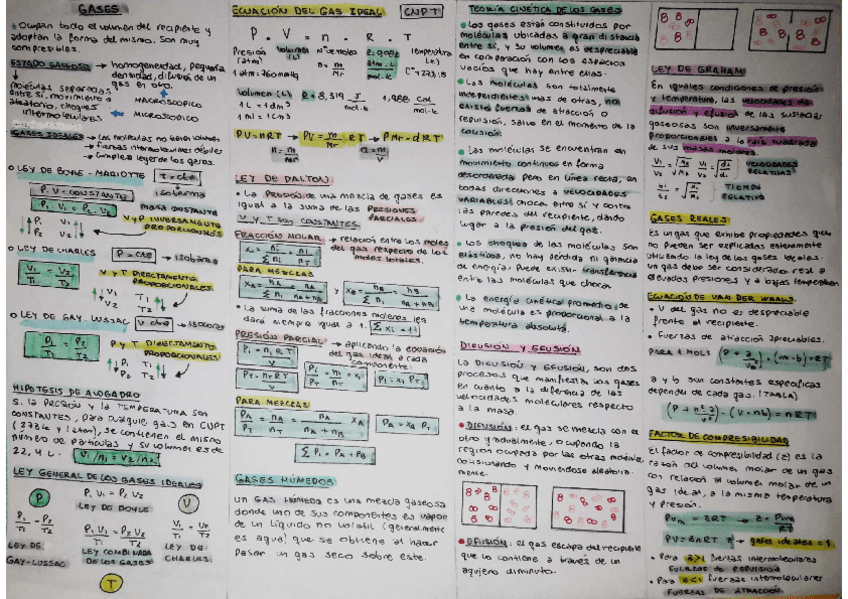 GASES
• Ocupan todo el volumen del recipiente y
adoptan la forma del mismo. Son muy
compresibles.
ESTADO GASEOSO → homogeneidad, pequeña
densidad, difusión de un
gas en otro.
moléculas separadas
entre sí, movimiento
aleatorio, choques
intermoleculares
MACROSCOPICO
MICROSCOPICO
GASES IDEALES → Las moléculas no tienen volumen
→ fuerzas intermoleculares débiles
→ Cumple las leyes de los gases.
○ LEY DE BOYLE - MARIOTTE T = cte
P.V = CONSTANTE → isoterma
P1 V1 = P2 V2 MASA CONSTANTE
V y P INVERSAMENTE
PROPORCIONALES
↑P1 V1↓
P2 V2
○ LEY DE CHARLES P = cte → isobara
V1/T1 = V2/T2
V y T DIRECTAMENTE
PROPORCIONALES
V1 T1
V2 T2
○ LEY DE GAY LUSSAC V cte
P1/T1 = P2/T2
P y T DIRECTAMENTE
PROPORCIONALES
P1 T1
P2 T2
HIPOTESIS DE AVOGADRO
Si la PRESIÓN y la TEMPERATURA son
CONSTANTES, para cualquier gas en CNPT
(273 k y 1 atm), se contienen el mismo
número de partículas y su volumen es de
22,4 L. V1/n1 = V2/n2
LEY GENERAL DE LOS GASES IDEALES
P P1 V1 = P2 V2 V
LEY DE BOYLE
P1/T1 = P2/T2 P1 V1/T1 = P2 V2/T2 V1/T1 = V2/T2
LEY DE GAY-LUSSAC
LEY COMBINADA DE LOS GASES
LEY DE CHARLES
T
ECUACIÓN DEL GAS IDEAL CNPT
P . V = n . R . T
Presión (atm) 1 atm = 760 mmHg
Volumen (L)
Nº de moles n = m/Mr
0,082 atm.L/mol.k
Temperatura (k)
ºC + 273,15
Volumen (L) R = 8,314 J/mol.k
1 L = 1 dm³
1 ml = 1 cm³
PV = nRT → PV = m/Mr RT → P Mr = dRT
n = m/Mr d = m/V
LEY DE DALTON
• La PRESIÓN de una mezcla de gases es
igual a la suma de las PRESIONES
PARCIALES.
V y T son CONSTANTES.
FRACCIÓN MOLAR → relación entre los moles
del gas respecto de los
moles totales.
PARA MEZCLAS
xA = nA/Σni = nA/nA+nB
xB = nB/Σni = nB/nA+nB
• La suma de las fracciones molares les
dará siempre igual a 1. Σxi = 1
PRESIÓN PARCIAL → aplicando la ecuación
del gas ideal a cada
componente:
Pi = ni RT/V
PT = nT RT/V
Pi/PT = ni/nT
Pi = xi PT
PARA MEZCLAS
PA/PT = nA/nT = nA/nA+nB = xA
PA = xA PT
ΣPi = PA + PB
GASES HÚMEDOS
UN GAS HÚMEDO es una mezcla gaseosa
donde uno de sus componentes es vapor
de un líquido no volátil (generalmente
es agua) que se obtiene al hacer
pasar un gas seco sobre este.
TEORÍA CINÉTICA DE LOS GASES
• Los gases están constituidos por
moléculas ubicadas a gran distancia
entre sí, y su volumen es despreciable
en comparación con los espacios
vacíos que hay entre ellas.
• Las moléculas son totalmente
independientes unas de otras, no
existe fuerzas de atracción o
repulsión, salvo en el momento de la
colisión.
• Las moléculas se encuentran en
movimiento continuo en forma
desordenada pero en línea recta, en
todas direcciones a VELOCIDADES
VARIABLES! chocan entre sí y contra
las paredes del recipiente, dando
lugar a la presión del gas.
• Los choques de las moléculas son
elásticos, no hay pérdida ni ganancia
de energía. Puede existir transferencia
entre las moléculas que chocan
• La energía cinética promedio, de
una molécula es proporcional a la
temperatura absoluta.
DIFUSIÓN Y EFUSIÓN
La DIFUSIÓN y EFUSIÓN, son dos
procesos que manifiestan los gases
en cuanto a la diferencia de las
velocidades moleculares respecto
a la masa.
• DIFUSIÓN: el gas se mezcla con el
otro gradualmente, ocupando la
región ocupada por las otras moléculas,
colisionando y moviéndose aleatoria-
mente.
• EFUSIÓN: el gas escapa del recipiente
que lo contiene a través de un
agujero diminuto.
LEY DE GRAHAM
En iguales condiciones de presión
y temperatura, las velocidades de
difusión y efusión de las sustancias
gaseosas son inversamente
proporcionales a la raíz cuadrada
de sus masas molares.
VELOCIDADES RELATIVAS
TIEMPO RELATIVO
GASES REALES
Es un gas que exhibe propiedades que
no pueden ser explicadas enteramente
utilizando la ley de los gases ideales.
Un gas debe ser considerado real a
elevadas presiones y a bajas temperaturas
ECUACIÓN DE VAN DER WAALS
• V del gas no es despreciable
frente al recipiente.
• Fuerzas de atracción apreciables.
PARA 1 MOL:
a y b son constantes específicas
depende de cada gas. (TABLA)
(P + n² a/V²) · (V - nb) = nRT
FACTOR DE COMPRESIBILIDAD
El factor de compresibilidad (z) es la
razón del volumen molar de un gas
con relación al volumen molar de un
gas ideal, a la misma temperatura
y presión.
PV = zn RT → gases ideales = 1.
• Para z>1 fuerzas intermoleculares
FUERZAS DE REPULSIÓN
• Para z<1 fuerzas intermoleculares
FUERZAS DE ATRACCIÓN.